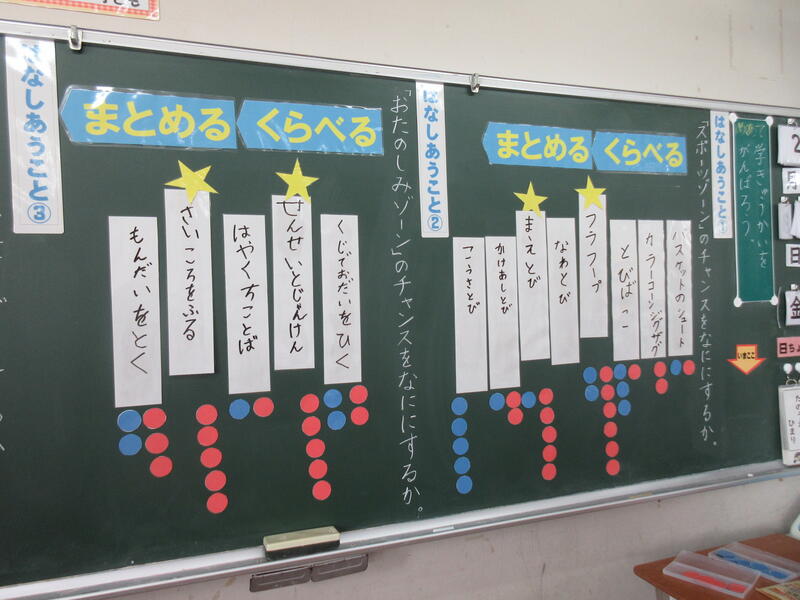 めあて
で学きゅうかいを
がんばろう。
はなしあうこと①
「スポーツゾーン」のチャンスをなににするか。
くらべる
まとめる
バスケットのシュート
カラーコーンジグザグ
とびばこ
フラフープ
なわとび
まえとび
かけあしとび
こうさとび
はなしあうこと②
「おたのしみゾーン」のチャンスをなににするか。
くらべる
まとめる
くじでおだいをひく
せんせいとじゃんけん
はやくちことば
さいころをふる
もんだいをとく
はなしあうこと③
いまここ
2
月
日
金
日ちょ
ひまり